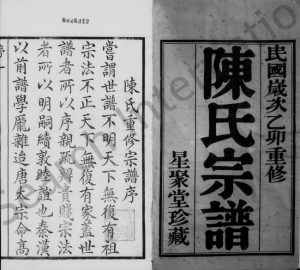 民國歲次乙卯重修
陳氏宗譜
星聚堂珍藏
陳氏重修宗譜序
嘗謂世譜不明天下無復有祖
宗法不正天下無復有家蓋世
譜者所以序親疏辨貴賤宗法
者所以明嗣續敦睦誼也秦漢
以前譜學龐雜迨唐太宗命高